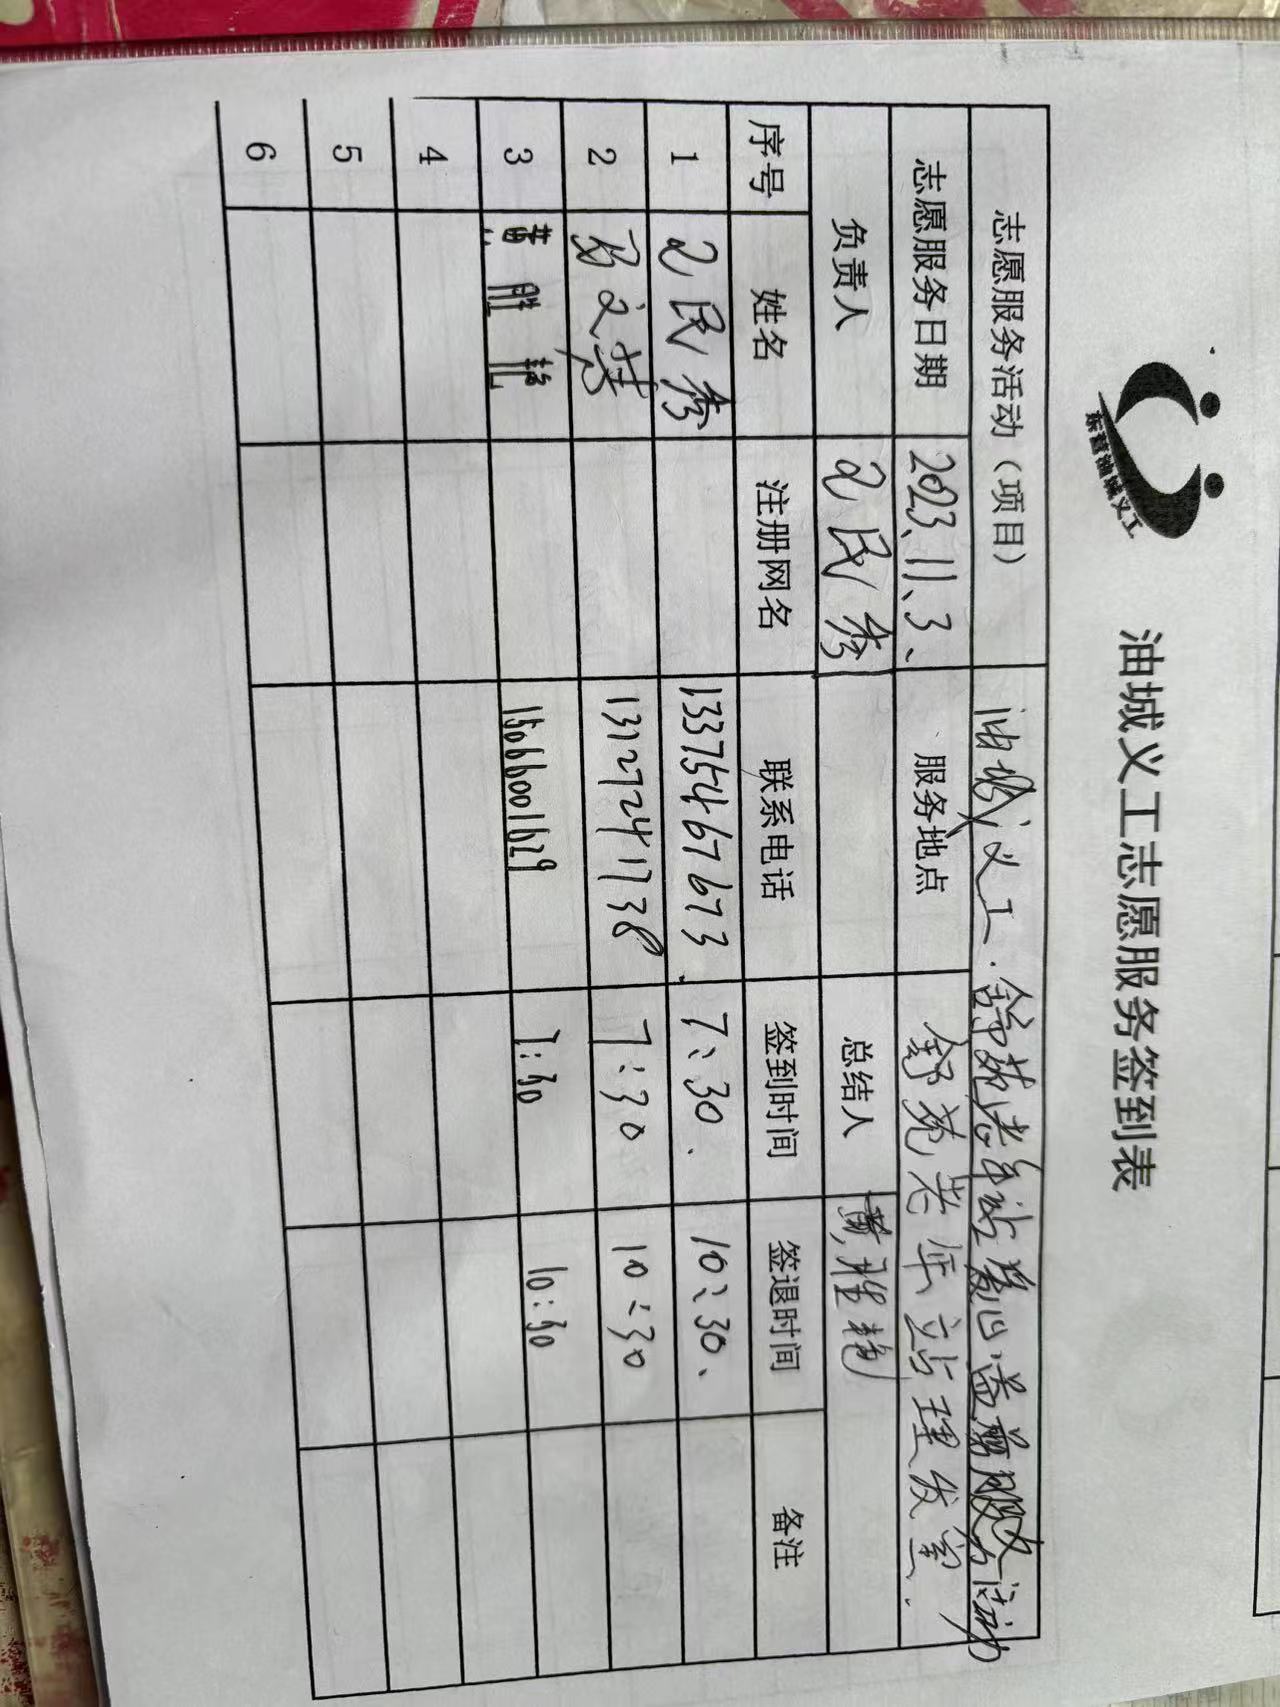 东营油城义工
油城义工志愿服务签到表
志愿服务活动（项目） 油城义工.舒苑老年站爱心.益剪服务活动
志愿服务日期 2023、11、3、 服务地点 舒苑老年站理发室.
负责人 民秀 总结人 黄胜艳
序号 姓名 注册网名 联系电话 签到时间 签退时间 备注
1 民秀 13375467673. 7:30. 10:30、
2 文 13127241738 7:30 10:30
3 黄胜艳 15066001629 7:30 10:30
4
5
6